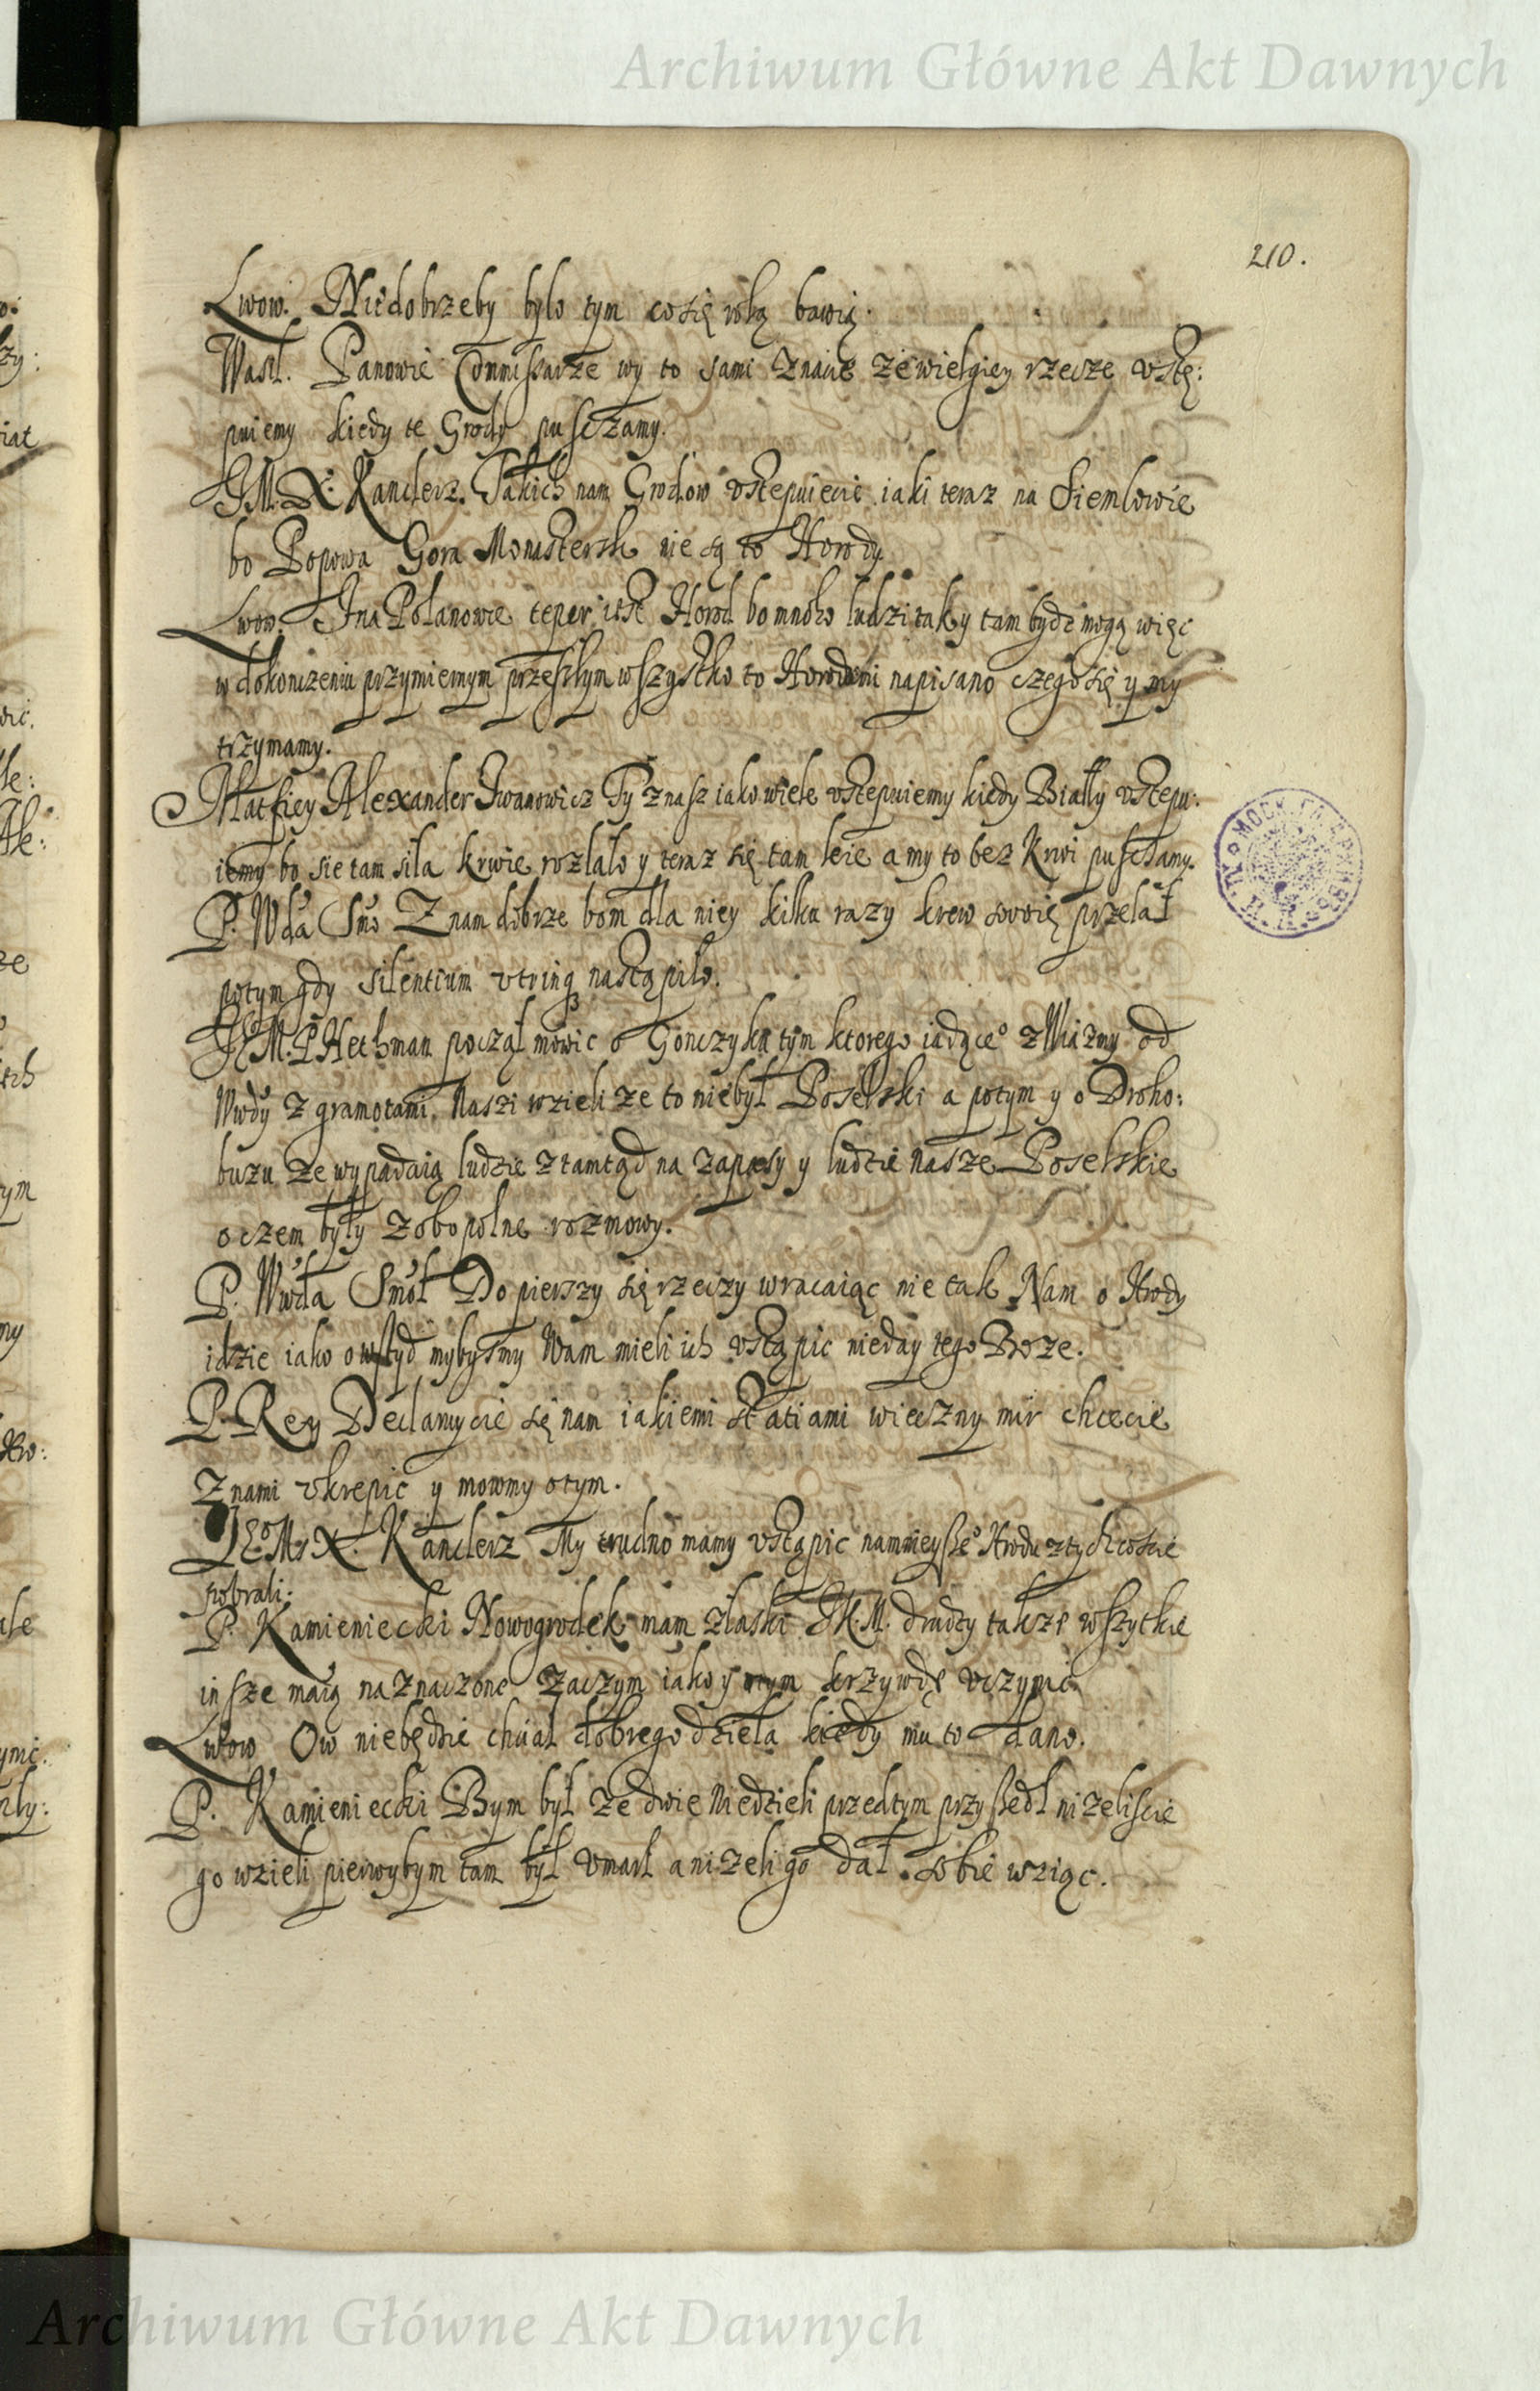 Archiwum Główne Akt Dawnych
210.
Lwow. Niedobrzeby było tym co się rolą bawią.
Wasil. Panowie Commissarze wy to sami znacie ze wielgiey rzecze vstę:
puiemy kiedy te Grody pusczamy.
J M. X. Kanclerz. Takich nam Grodow vstepuiecie iaki teraz na Siemlowie
bo Popowa Gora Monastersk nie są to Horody.
Lwow. Ina Polanowie teper iest Horod bo mnoho ludzi tak y tam bydz mogą więc
w dokonczeniu przymiernym przeszłym wszystko to Horodami napisano czego się y my
trzymamy.
Matfiey Alexander Iwanowicz Ty znasz iako wiele vstepuiemy kiedy Biały vstepu:
iemy bo sie tam siła krwie rozlało y teraz się tam leie a my to bez Krwi pusczamy.
P. Wda Smo Znam dobrze bom dla niey kilka razy krew swoię przelał
potym gdy silentium vtrinq nastąpiło.
JE M. P Hethman począł mowic o Gonczyku tym ktorego iadące° z Wiazmy od
Wwdy z gramotami. Naszi wzieli ze to niebył Poselski a potym y o Droho:
buzu ze wypadaią ludzie ztamtąd na zapasy y ludzie nasze Poselskie
o czem były zobopolne rozmowy.
P. Wwda Smol Do pierszy się rzeczy wracaiąc nie tak Nam o Hrody
idzie iako o wstyd mybysmy Wam mieli ich vstąpic nieday tego Boze.
P. Rey Declaruycie się nam iakiemi statiami wieczny mir chcecie
Znami vkrepic y mowmy o tym.
JE° Mś X. Kanclerz My trudno mamy vstąpic namnieysze° Hrodu z tych coscie
pobrali.
P. Kamieniecki Nowogrodek mam z łaski JK. M. drudzy takze wszytkie
insze maią naznaczone zaczym iako y w tym krzywdę vczynic.
Lwow Ow niebędzie chciał dobrego dzieła kiedy mu to dano.
P. Kamieniecki Bym był ze dwie Niedzieli przedtym przyszedł nizeliscie
go wzieli pierwybym tam był vmarł anizeli go dał sobie wziąc.
Archiwum Główne Akt Dawnych